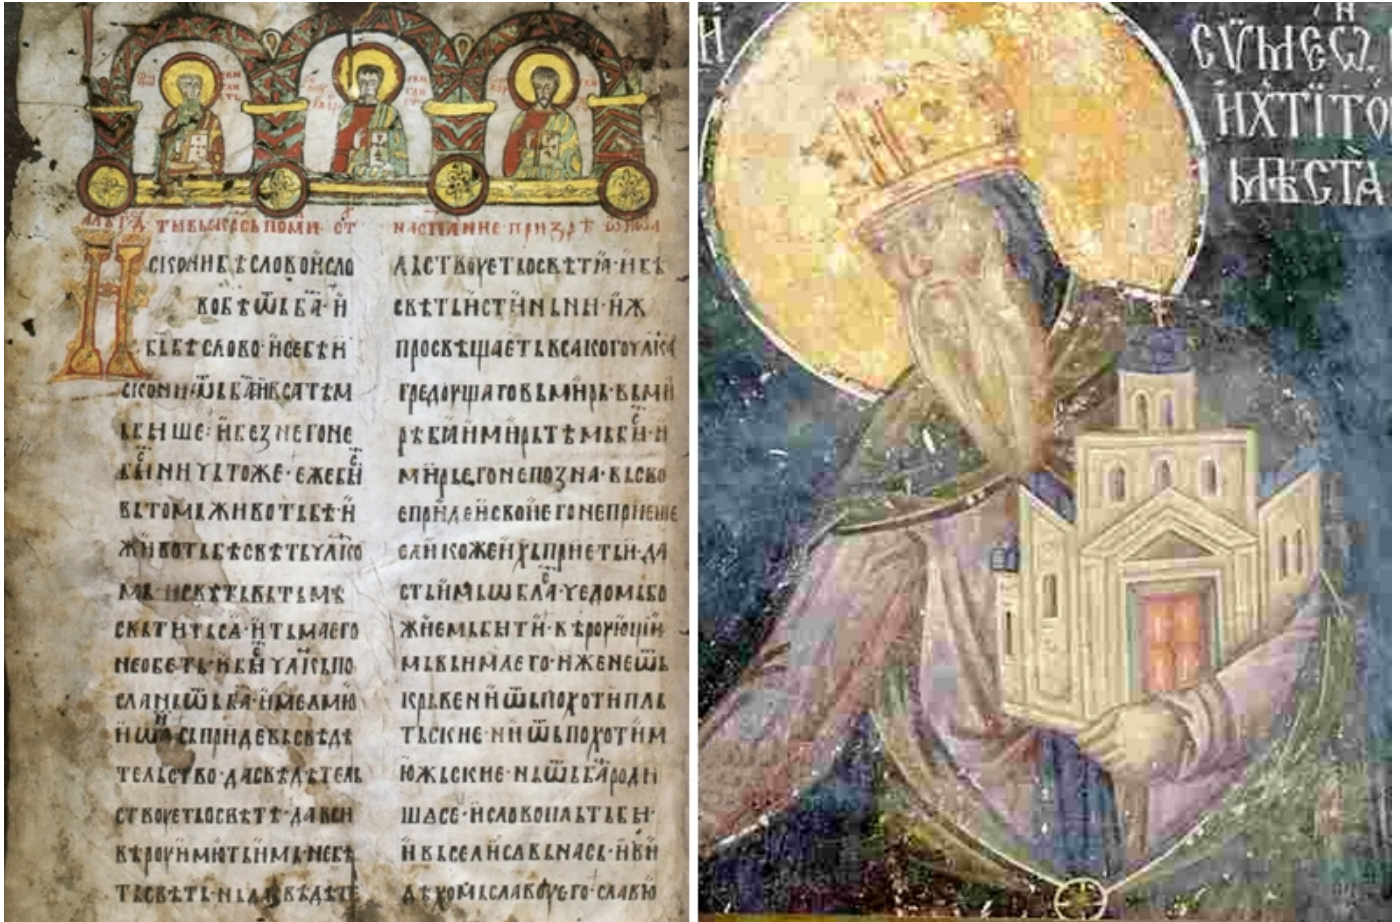 СКОНИБѢСЛОВОИСЛО
ВОБѢѾЬБА·И
БЬБѢСЛОВО·ИСЕБѢИ
СКОНИѾЬБА·ИВСАТѢМ
ЬБЫШЕ:ИБЕЗНЕГОНЕ
НИЧЬТОЖЕ·ЕЖЕБЫ
ВЬТОМЬЖИВОТЬБѢ·И
ЖИВОТЬБѢСВѢТЬЧЛКО
МЬ·ИСВѢТЬВЬТЬМѢ
СВЬТИТЬСА·ИТЬМАЕГО
НЕОБЕТЬ·ИБЫЧЛКЬПО
СЛАНЬѾЬБА·ИМЕЕМЮ
СЬПРИДЕВЬСВѢДѢ
ТЕЛЬСТВО·ДАСВѢДѢТЕЛЬ
СТВОУЕТЬОСВѢТѢ·ДАВСИ
ВѢРОУИМЮТЬИМЬ·НЕБѢ
ТЬСВѢТЬ·НЬДАСВѢДѢТЕ
ЛЬСТВОУЕТЬОСВѢТѢ·ИБѢ
СВѢТЬИСТИНЬНИ·ИЖ
ПРОСВѢЩАЕТЬВСАКОГОЧЛКА
ГРЕДОУЩАГОВЬМИРЬ·ВЬМИ
РѢБѢИМИРЬТѢМЬБЫ·И
МИРЬЕГОНЕПОЗНА·ВЬСВО
ЕПРИДЕИСВОИЕГОНЕПРИЕШЕ
ЕЛИКОЖЕИХЬПРИЕТЬИ·ДА
СТЬИМЬѾБЛА·ЧЕДОМЬБО
ЖИЕМЬБЫТИ·ВѢРОУЮЩИ
МЬВЬИМАЕГО·ИЖЕНЕѾЬ
КРЬВЕНИѾЬПОХОТИПЛЬ
ТЬСКИЕ·НИѾЬПОХОТИМ
ЮЖЬСКИЕ·НЬѾЬБАРОДИ
ШАСЕ·ИСЛОВОПЛЬТЬБЫ·
ИВЬСЕЛИСАВЬНАСЬ·ИВИ
ДѢХОМЬСЛАВОУЕГО·СЛАВЮ
СѴМЕѠ
ИХТІТО
МѢСТА